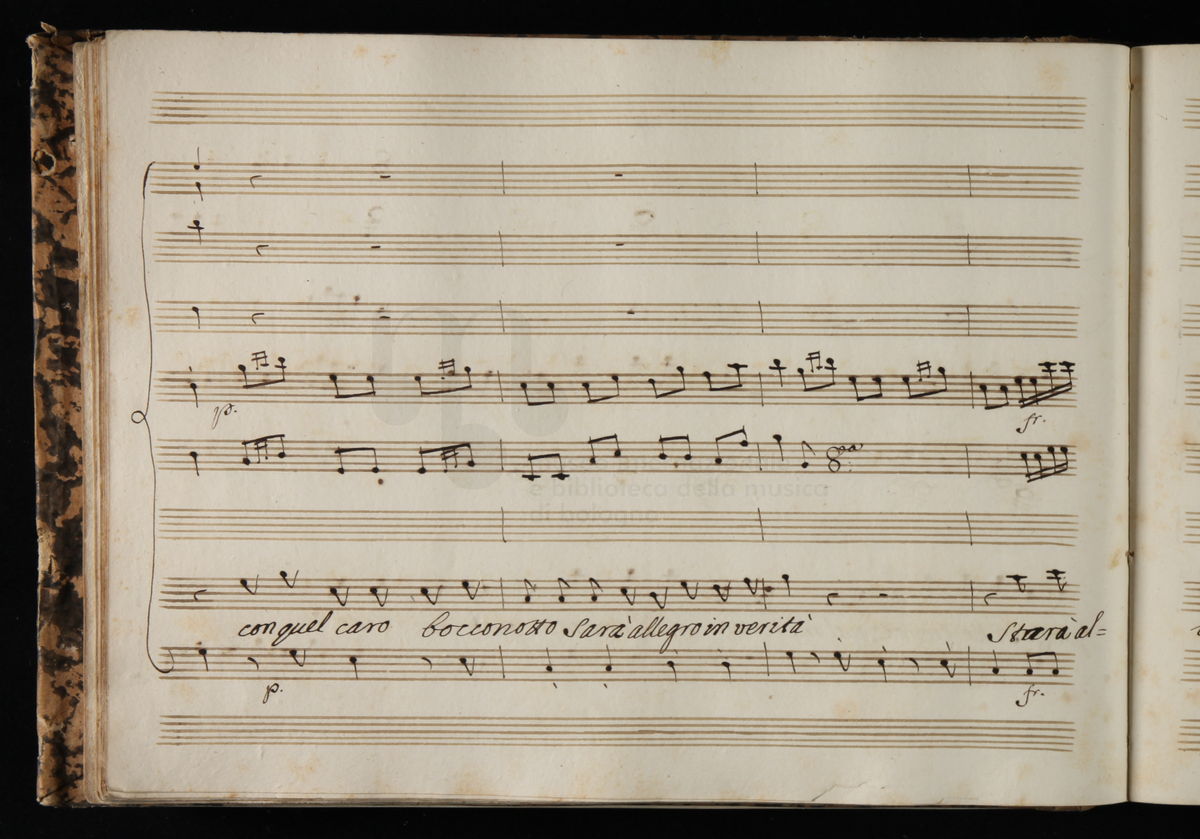 p.
fr.
8va
e biblioteca della musica
di bologna
con quel caro bocconotto Sarà allegro in verità Starà al=
p.
fr.